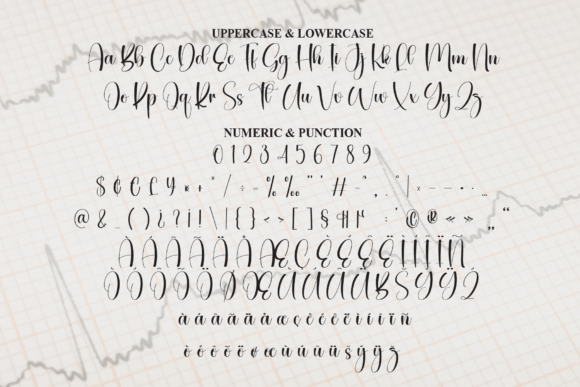 UPPERCASE & LOWERCASE
Aa Bb Cc Dd Ee Ff Gg Hh Ii Jj Kk Ll Mm Nn
Oo Pp Qq Rr Ss Tt Uu Vv Ww Xx Yy Zz
NUMERIC & PUNCTION
0 1 2 3 4 5 6 7 8 9
$ ¢ € £ ¥ * + ° / ÷ = % ‰ " ' # ~ ^ , . ° | × – — • · …
@ & _ ( ) ¿ ? ¡ ! \ | { } < > [ ] § ¶ : ' © ® « » „ “
À Á Â Ã Ä Å Æ Ç È É Ê Ë Ì Í Î Ï Ñ
Ò Ó Ô Õ Ö Ø Œ Ù Ú Û Ü ß Š Ý Ÿ Ž
à á â ã ä å æ ç è é ê ë ì í î ï ñ
ò ó ô õ ö ø œ ù ú û ü š ý ÿ ž